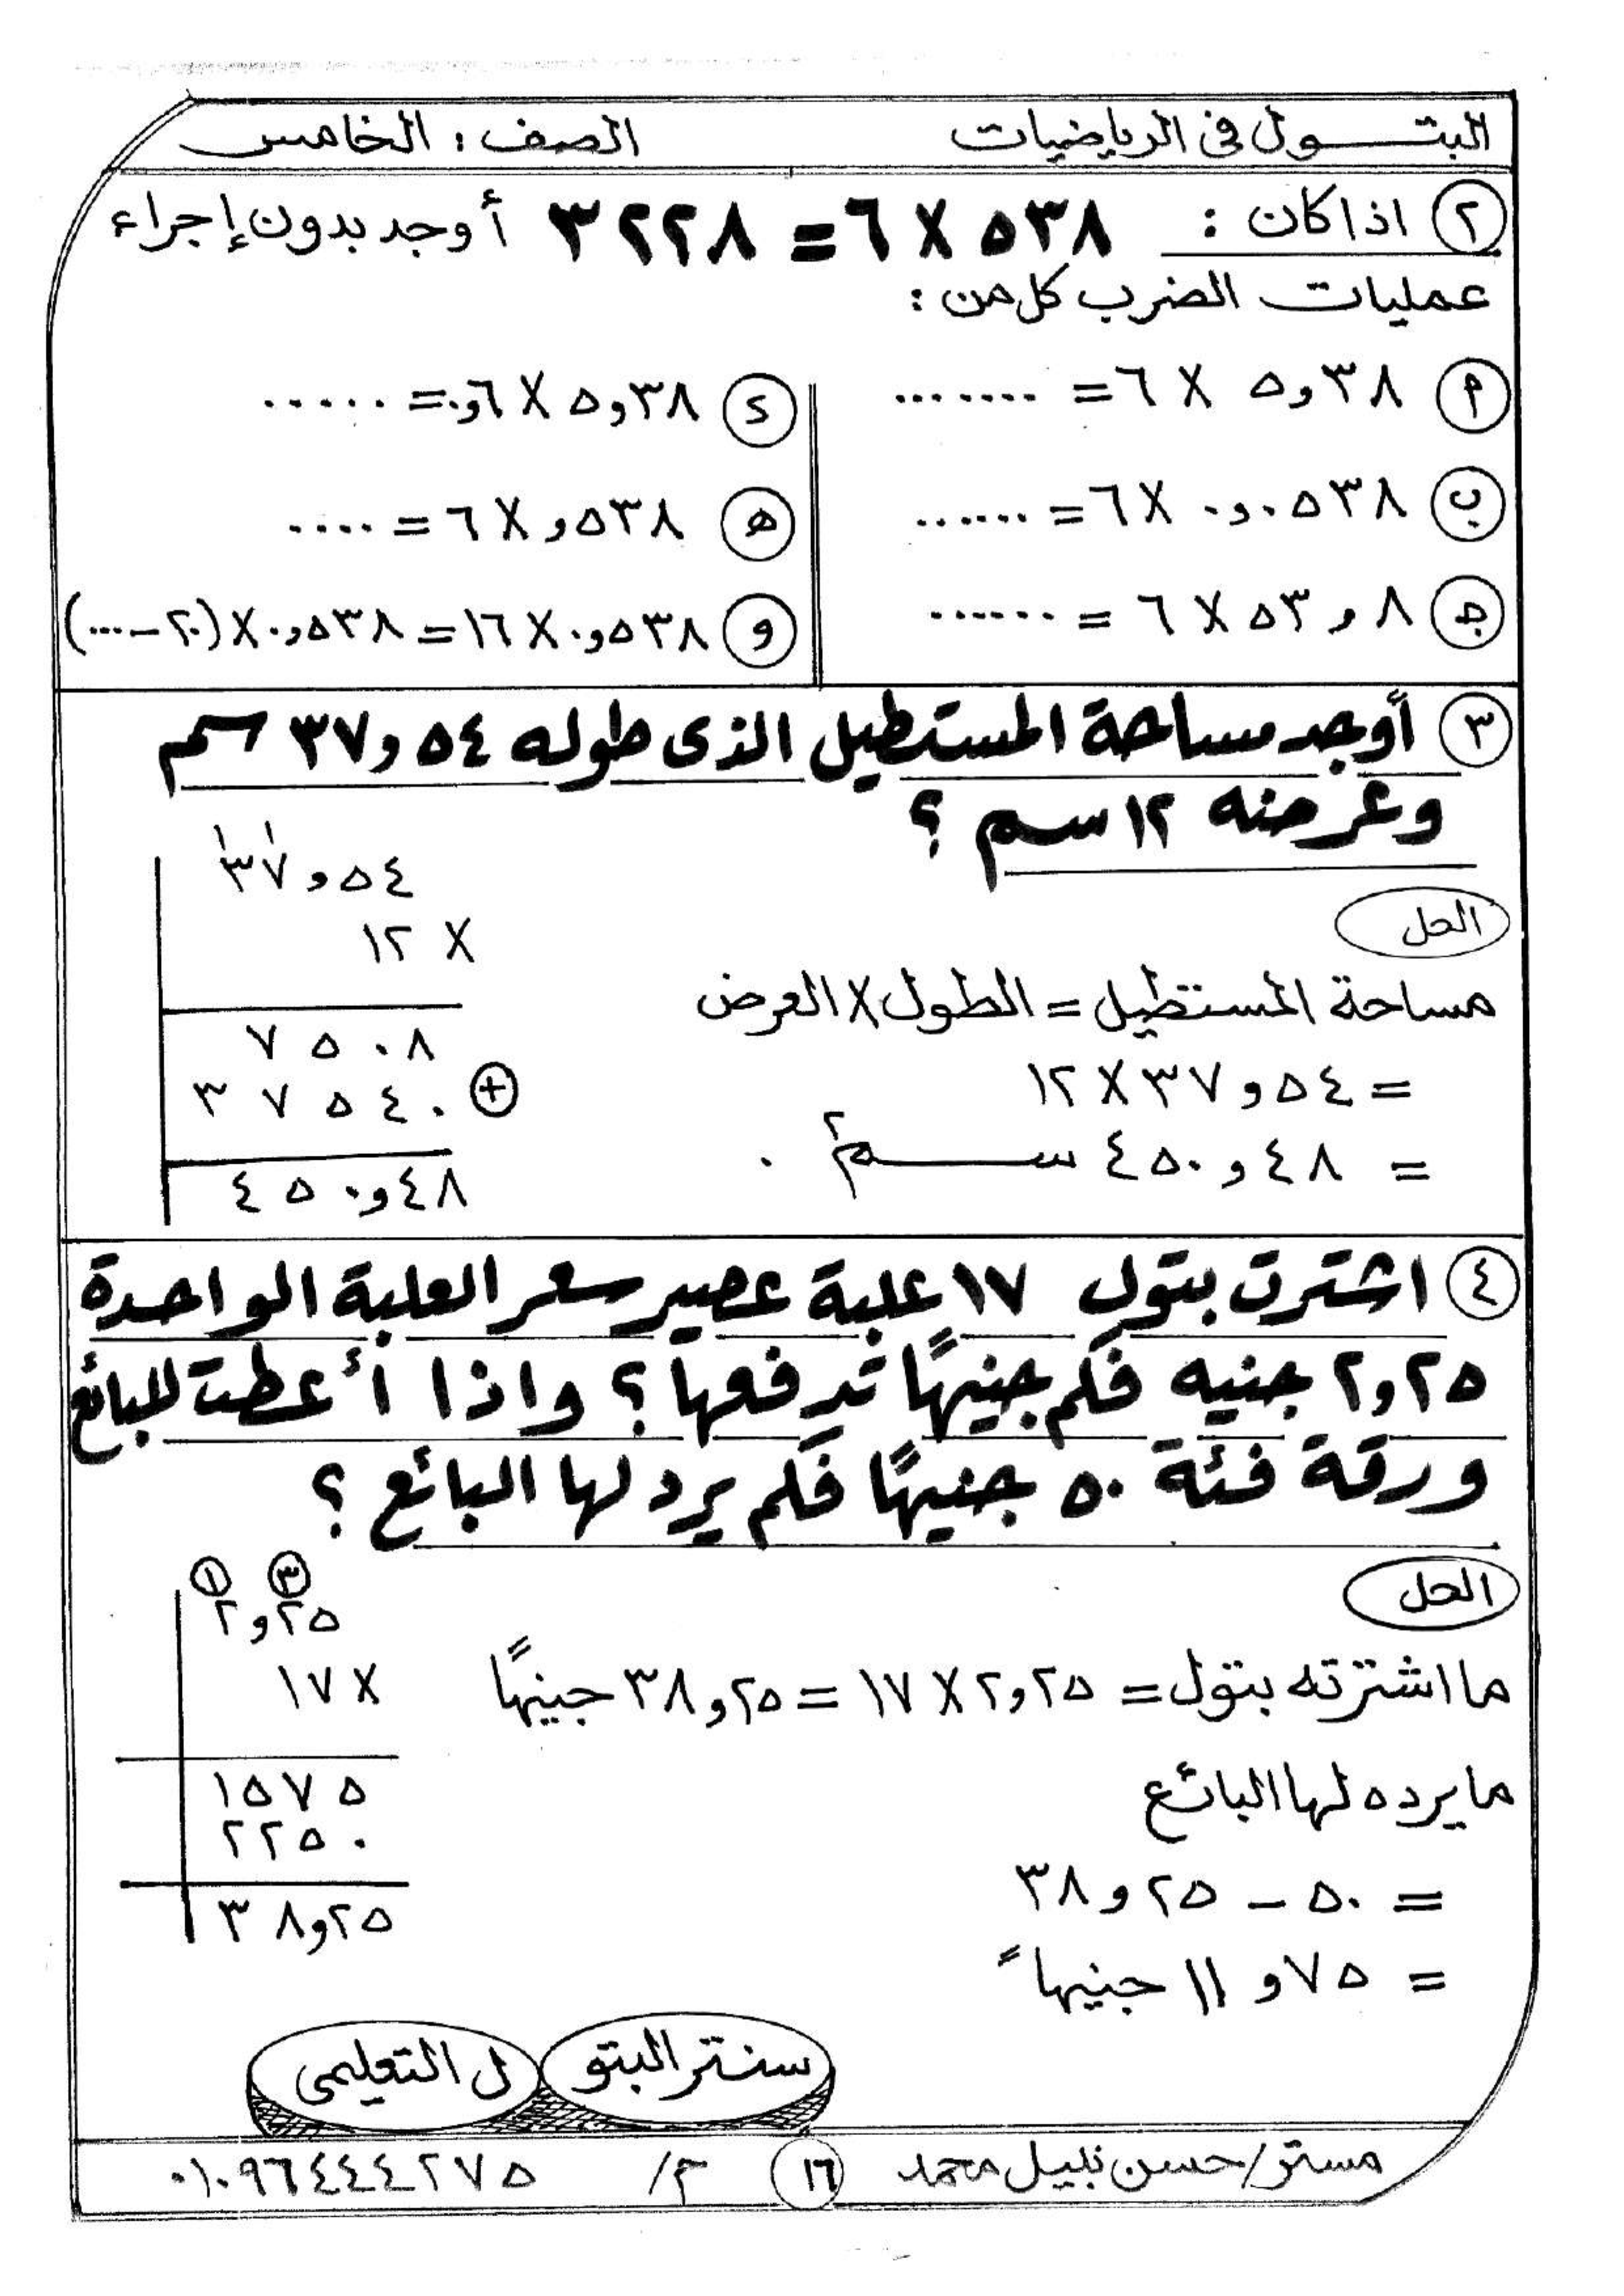 البتـــول فى الرياضيات
الصف : الخامس
٢ اذا كان : ٥٣٨ X ٦ = ٣٢٢٨ أوجد بدون إجراء
عمليات الضرب كل من :
أ ٥,٣٨ X ٦ = .......
ب ٠,٠٥٣٨ X ٦ = ......
جـ ٥٣,٨ X ٦ = ......
د ٥,٣٨ X ٠,٦ = .....
هـ ,٥٣٨ X ٦ = ....
و ٠,٥٣٨ X ١٦ = ٠,٥٣٨ X (٢٠ - ...)
٣ أوجد مساحة المستطيل الذى طوله ٣٧,٥٤ سم
وعرضه ١٢ سم ؟
الحل
مساحة المستطيل = الطول X العرض
= ٣٧,٥٤ X ١٢
= ٤٥٠,٤٨ ســم٢ .
١ ١
٣٧,٥٤
١٢ X
٧٥٠٨
٣٧٥٤٠ +
٤٥٠,٤٨
٤ اشترت بتول ١٧ علبة عصير سعر العلبة الواحدة
٢,٢٥ جنيه فكم جنيهًا تدفعها ؟ واذا أعطت للبائع
ورقة فئة ٥٠ جنيهًا فكم يرد لها البائع ؟
الحل
ما اشترته بتول = ٢,٢٥ X ١٧ = ٣٨,٢٥ جنيهًا
ما يرده لها البائع
= ٥٠ - ٣٨,٢٥
= ١١,٧٥ جنيهاً
١ ٣
٢,٢٥
١٧ X
١٥٧٥
٢٢٥٠
٣٨,٢٥
سنتر البتو ل التعليمى
مستر/حسن نبيل محمد ١٦ م/ ٠١٠٩٦٤٤٤٢٧٥